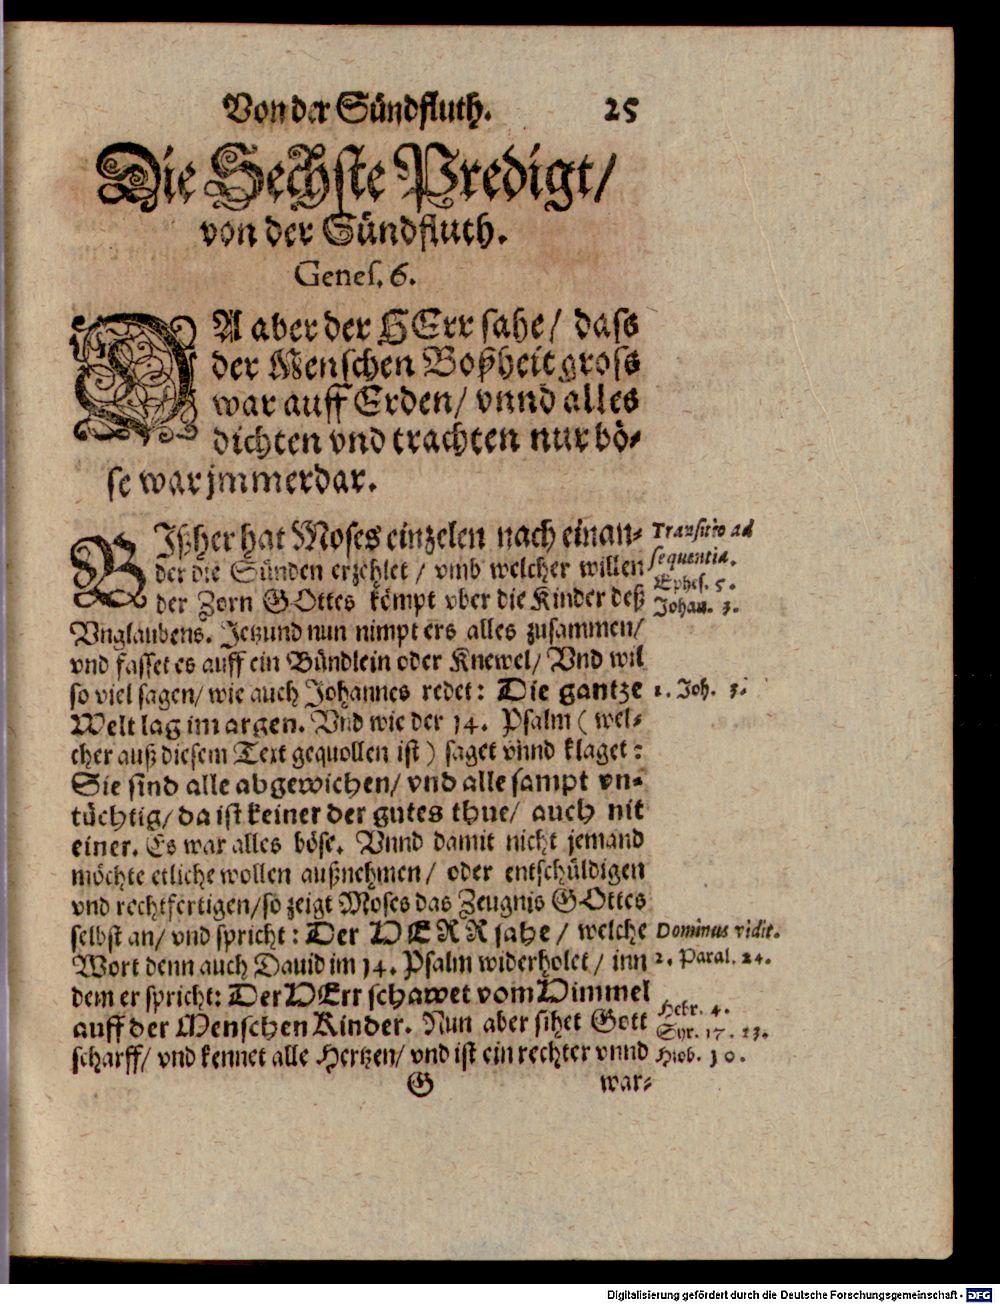 Von der Sündfluth. 25
Die Sechste Predigt/
von der Sündfluth.
Genes. 6.
DA aber der HErr sahe/ dass
der Menschen Boßheit gross
war auff Erden/ vnnd alles
dichten vnd trachten nur bö-
se war jmmerdar.
BIßher hat Moses einzelen nach einan- Transitio ad
der die Sünden erzehlet / vmb welcher willen sequentia.
der Zorn GOttes kömpt vber die Kinder deß Ephes. 5.
Johan. 3.
Vnglaubens. Jetzund nun nimpt ers alles zusammen/
vnd fasset es auff ein Bündlein oder Knewel/ Vnd wil
so viel sagen/ wie auch Johannes redet: Die gantze 1. Joh. 5.
Welt lag im argen. Vnd wie der 14. Psalm ( wel-
cher auß diesem Text gequollen ist ) saget vnnd klaget:
Sie sind alle abgewichen/ vnd alle sampt vn-
tüchtig/ da ist keiner der gutes thue/ auch nit
einer. Es war alles böse. Vnnd damit nicht jemand
möchte etliche wollen außnehmen/ oder entschüldigen
vnd rechtfertigen/ so zeigt Moses das Zeugnis GOttes
selbst an/ vnd spricht: Der HERR sahe/ welche Dominus vidit.
Wort denn auch Dauid im 14. Psalm widerholet/ inn 2. Paral. 24.
dem er spricht: Der HErr schawet vom Himmel
auff der Menschen Kinder. Nun aber sihet Gott Hebr. 4.
Syr. 17. 23.
scharff/ vnd kennet alle Hertzen/ vnd ist ein rechter vnnd Hiob. 10.
G war-
Digitalisierung gefördert durch die Deutsche Forschungsgemeinschaft - DFG